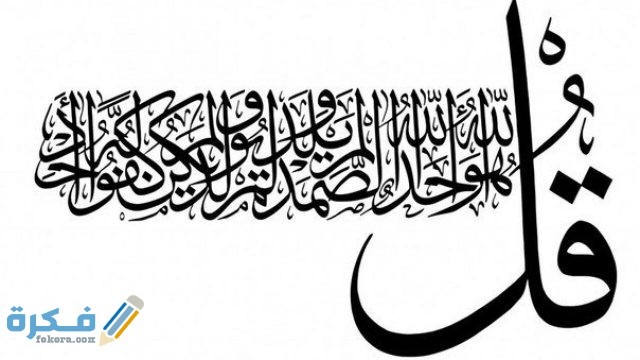 قُلْ هُوَ اللَّهُ أَحَدٌ اللَّهُ الصَّمَدُ لَمْ يَلِدْ وَلَمْ يُولَدْ وَلَمْ يَكُنْ لَهُ كُفُوًا أَحَدٌ
فكرة
fekera.com